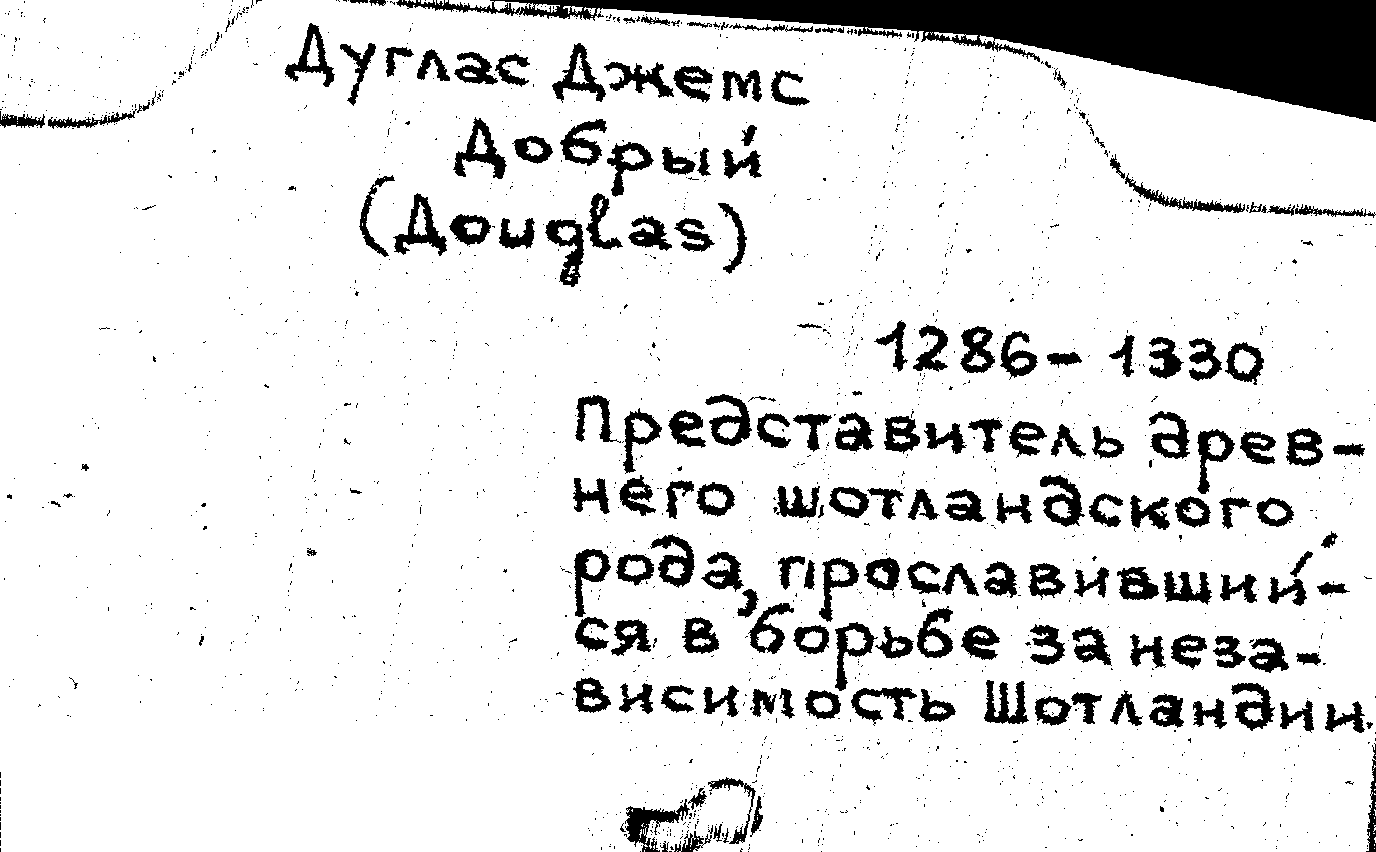 Дуглас Джемс
Добрый
(Douglas)
1286 – 1330
Представитель древ-
него шотландского
рода, прославивший-
ся в борьбе за неза-
висимость Шотландии.